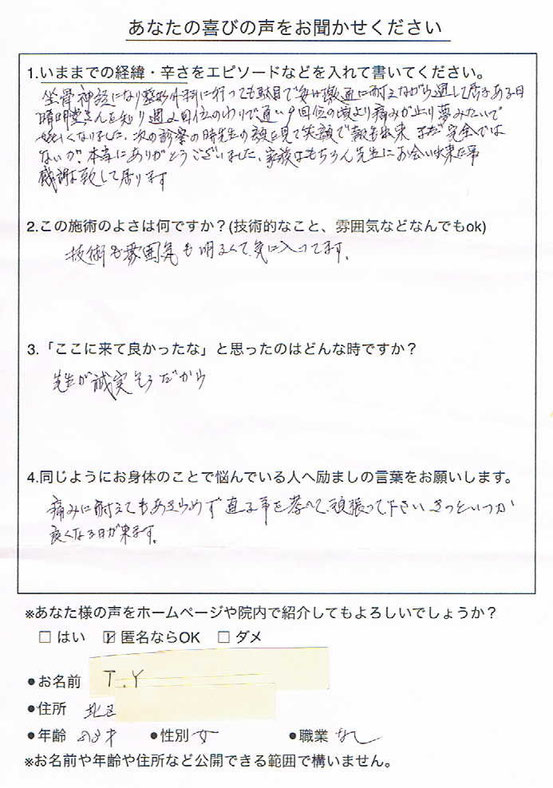 あなたの喜びの声をお聞かせください
1.いままでの経緯・辛さをエピソードなどを入れて書いてください。
坐骨神経になり整形外科に行っても駄目で毎日激痛に耐えながら過して居る ある日
晴明堂さんを知り週2回位のわりで通い9回位の頃より痛みが止り夢みたいで
嬉しくなりました。次の診察の時先生の顔を見て笑顔で報告出来 まだ完全では
ないが、本当にありがとうございました。家族はもちろん先生にお会い出来た事
感謝致して居ります
2.この施術のよさは何ですか?(技術的なこと、雰囲気などなんでもok)
技術も雰囲気も明るくて気に入ってます。
3.「ここに来て良かったな」と思ったのはどんな時ですか?
先生が誠実そうだから
4.同じようにお身体のことで悩んでいる人へ励ましの言葉をお願いします。
痛みに耐えてもあきらめず直る事を考へて頑張って下さい きっといつか
良くなる日が来ます。
※あなた様の声をホームページや院内で紹介してもよろしいでしょうか?
□ はい ☑ 匿名ならOK □ ダメ
●お名前 T.Y
●住所 北区
●年齢 才 ●性別 女 ●職業 なし
※お名前や年齢や住所など公開できる範囲で構いません。